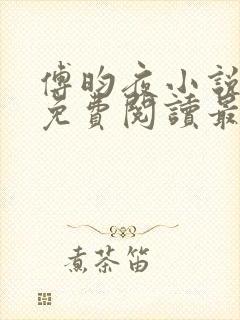 傅昀夜小說
免費閱讀最
煮茶笛